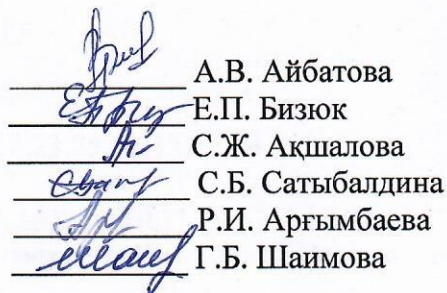 А.В. Айбатова
Е.П. Бизюк
С.Ж. Ақшалова
С.Б. Сатыбалдина
Р.И. Арғымбаева
Г.Б. Шаимова